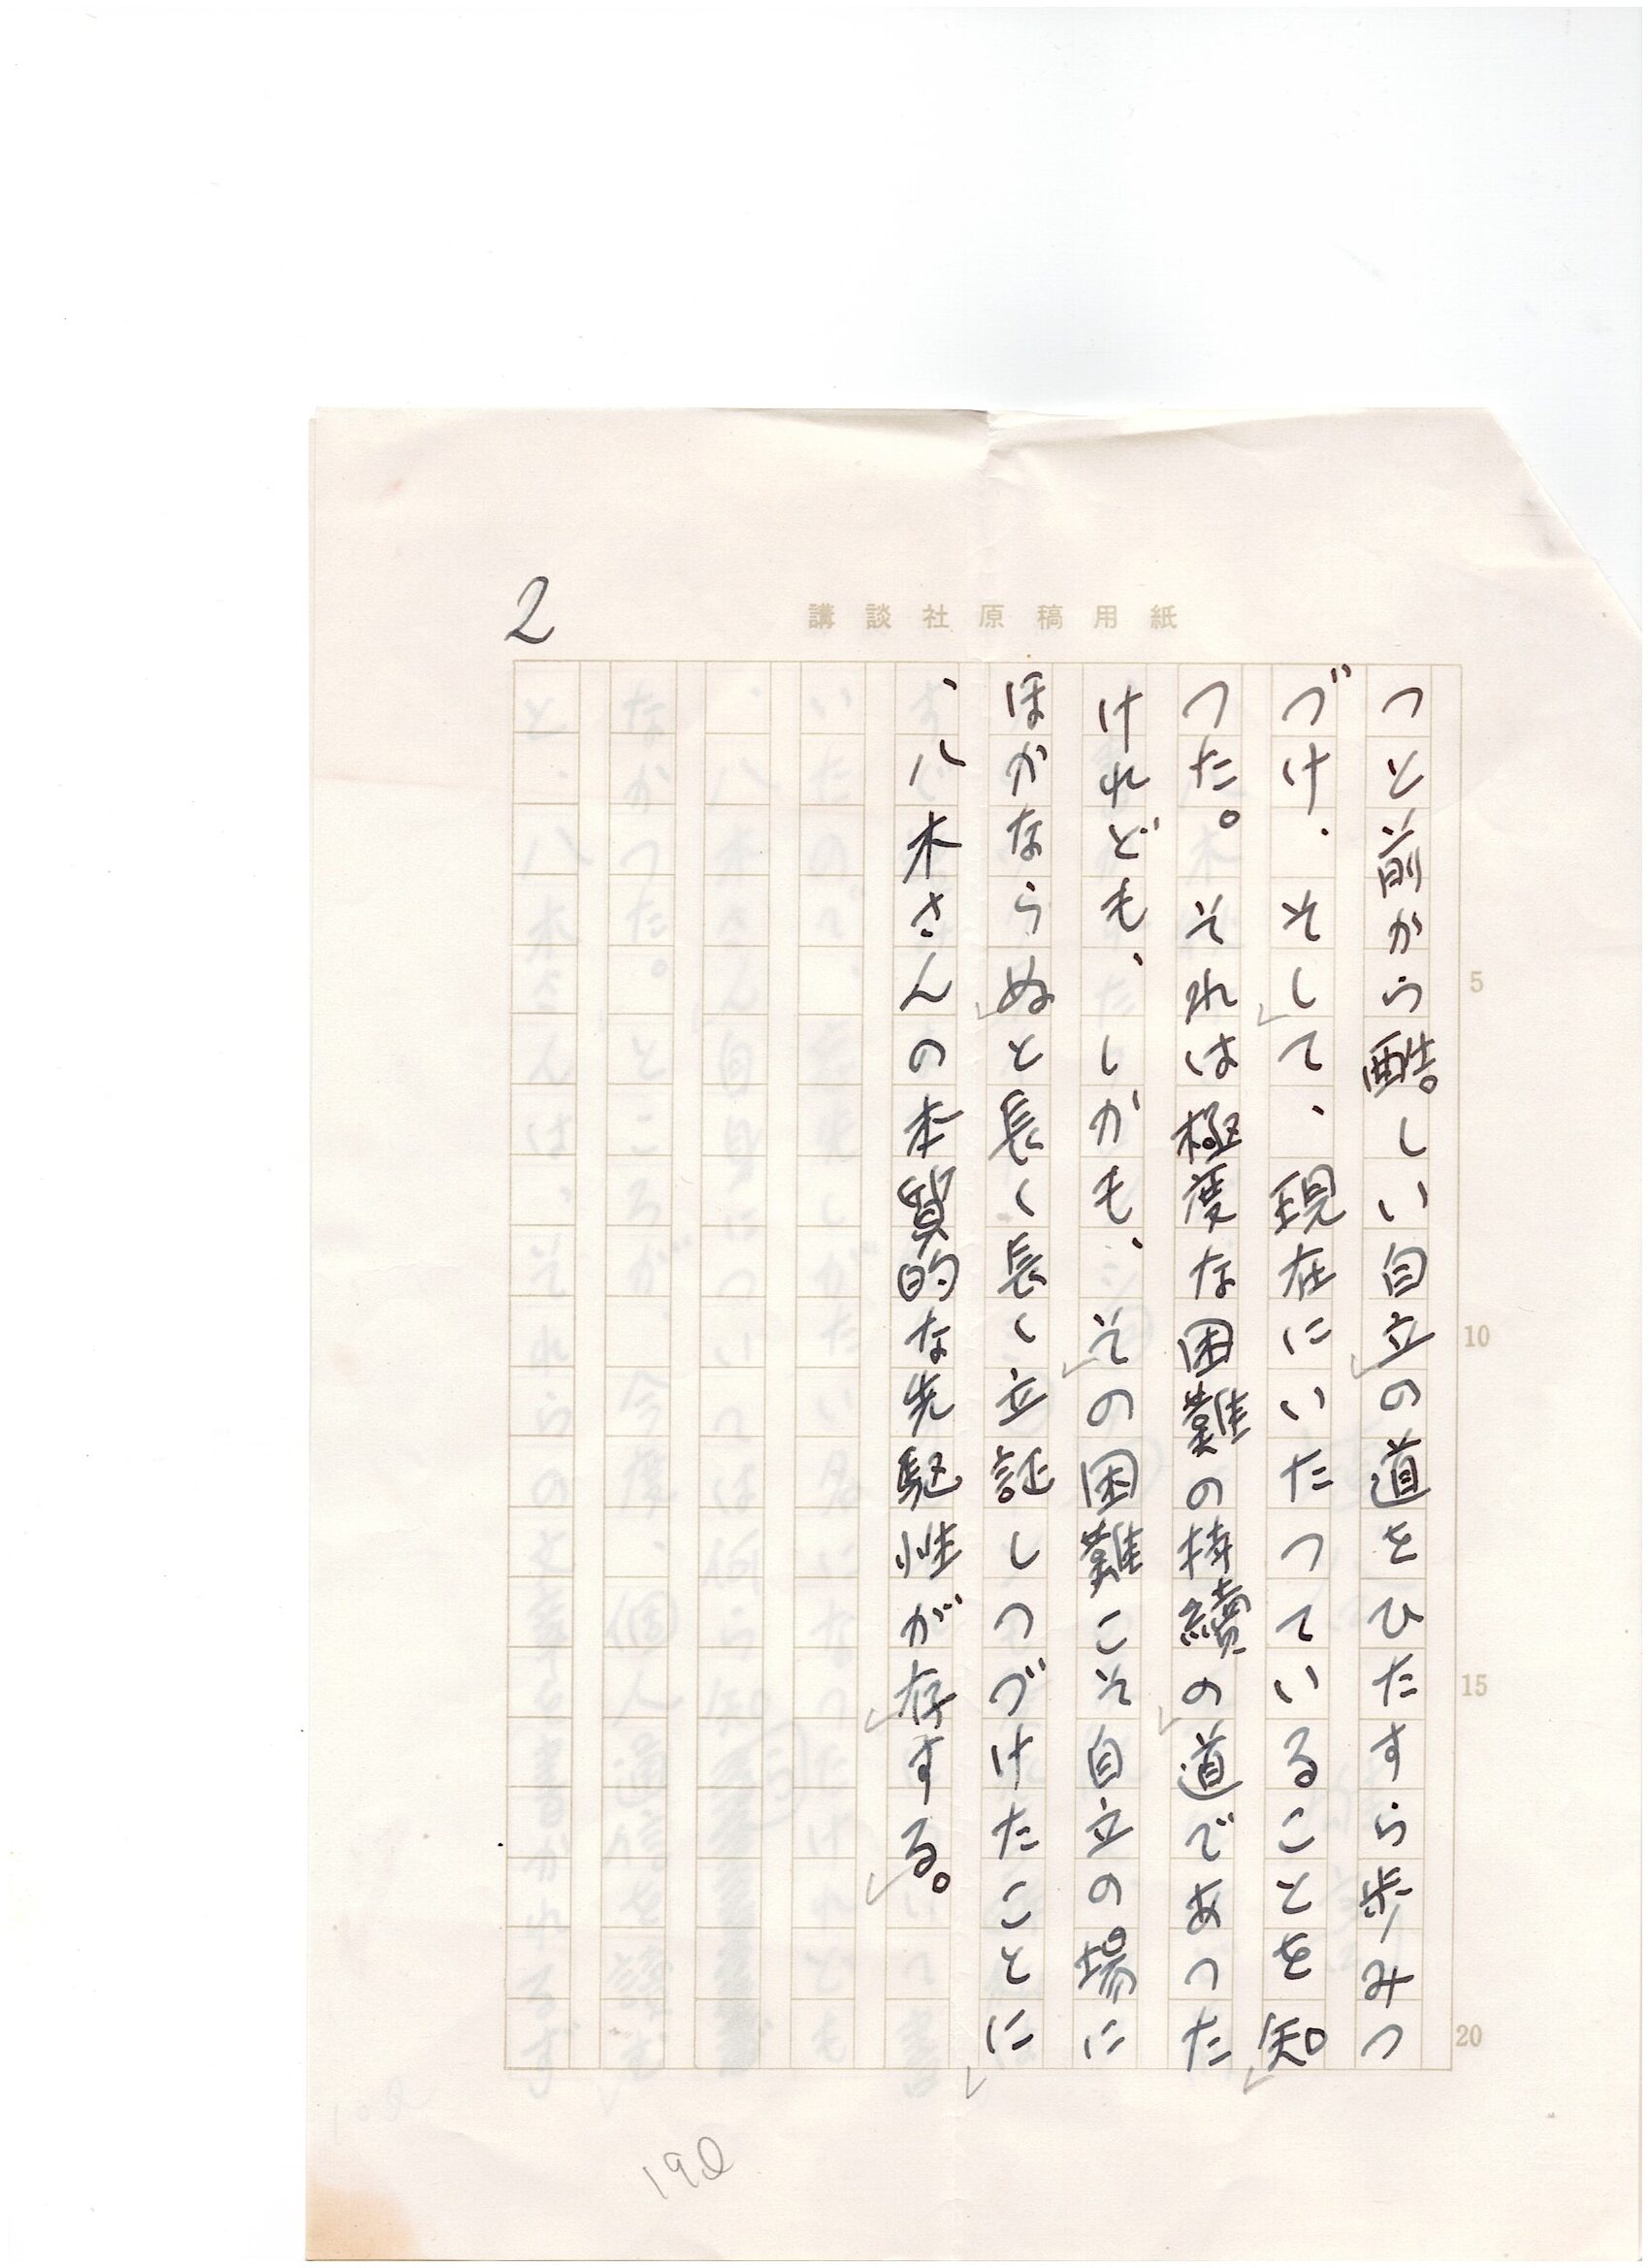 2
講談社原稿用紙
つと前から酷しい自立の道をひたすら歩みつ
づけ、そして、現在にいたつていることを知
つた。それは極度な困難の持続の道であつた
けれども、しかも、その困難こそ自立の場に
ほかならぬと長く長く立証しつづけたことに
、八木さんの本質的な先駆性が存する。
5
10
15
20
19l